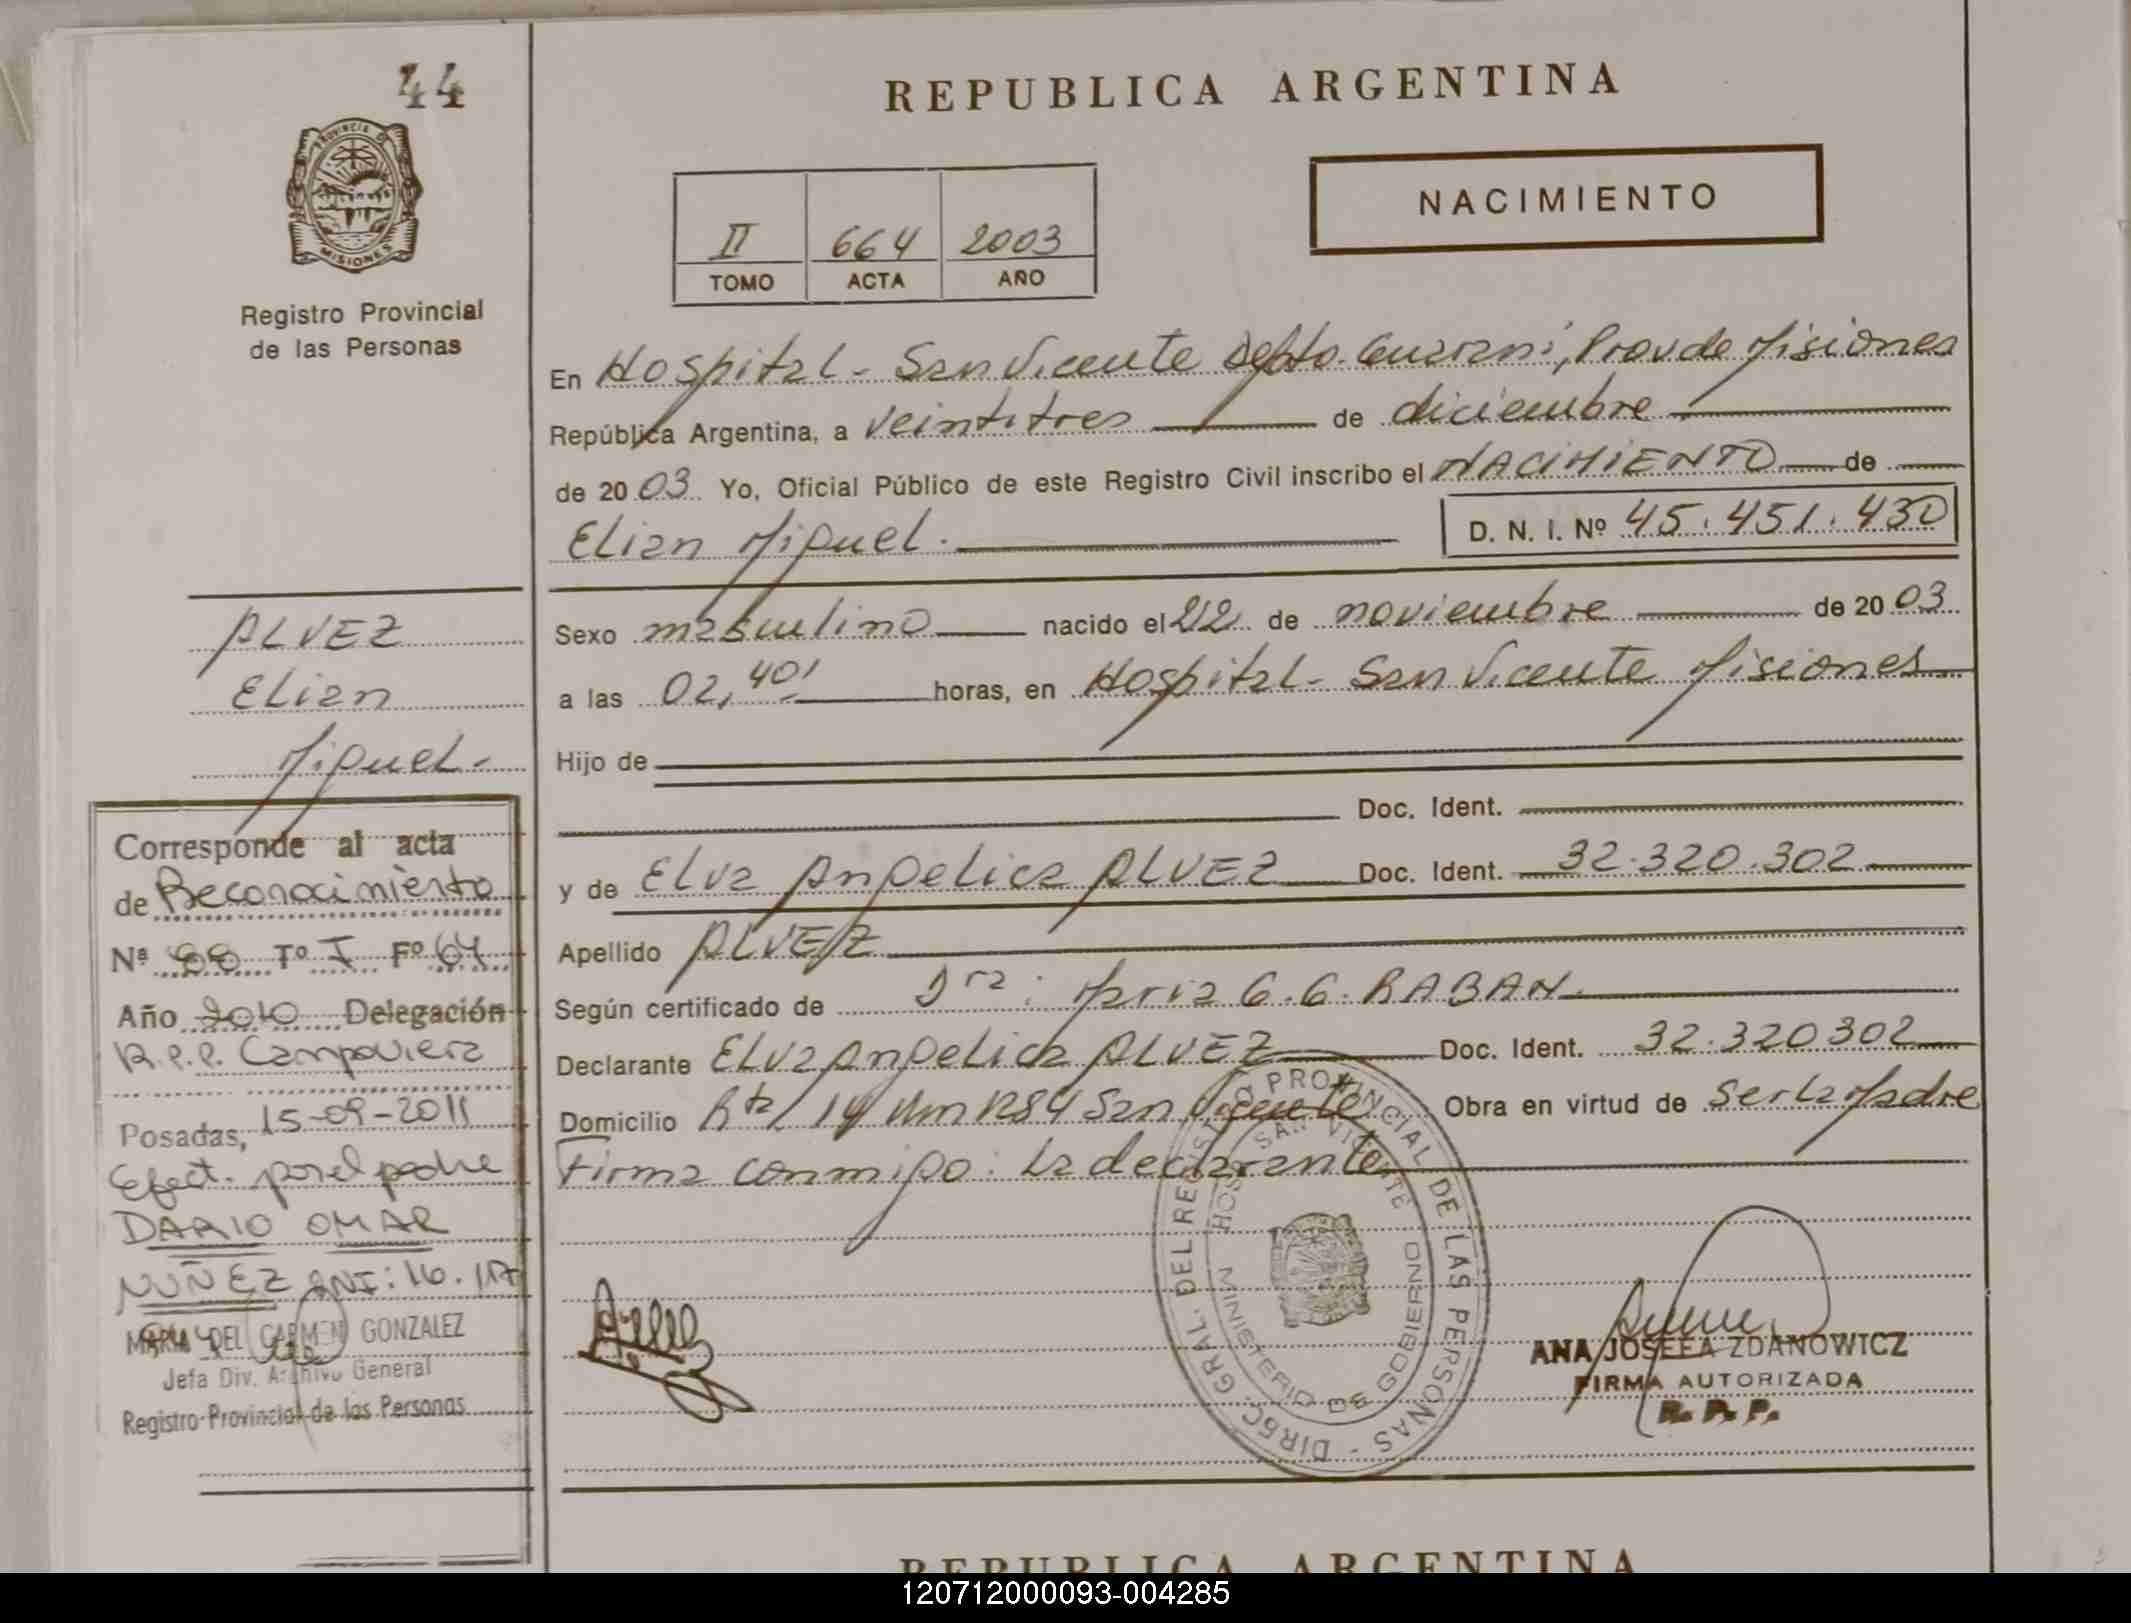 44
PROVINCIA DE
MISIONES
Registro Provincial
de las Personas
REPUBLICA ARGENTINA
NACIMIENTO
II 664 2003
TOMO ACTA AÑO
En Hospital - San Vicente Depto. Guaraní, Prov de Misiones
República Argentina, a veintitres de diciembre
de 2003 Yo, Oficial Público de este Registro Civil inscribo el NACIMIENTO de
Elian Miguel.
D. N. I. Nº 45.451.430
Sexo masculino nacido el 22 de noviembre de 2003
a las 02,40' horas, en Hospital - San Vicente Misiones
Hijo de
Doc. Ident.
y de Elva Angelica ALVEZ Doc. Ident. 32.320.302
Apellido ALVEZ
Según certificado de Dra: Maria G. G. RABAN
Declarante Elva Angelica ALVEZ Doc. Ident. 32.320302
Domicilio Rta 14 Km 1284 San Vicente Obra en virtud de ser la Madre
Firma conmigo: La declarante
ALVEZ
Elian
Miguel -
Corresponde al acta
de Reconocimiento
Nª Tº I Fº 64
Año 2010 Delegación
R.P.P. Campoviera
Posadas, 15-09-2011
Efect. por el padre
DARIO OMAR
NUÑEZ DNI: 16.
MARIA DEL CARMEN GONZALEZ
Jefa Div. Archivo General
Registro Provincial de las Personas
DIREC. GRAL. DEL REGISTRO PROVINCIAL DE LAS PERSONAS
HOSP. SAN VICENTE
MINISTERIO DE GOBIERNO
ANA JOSEFA ZDANOWICZ
FIRMA AUTORIZADA
R. P. P.
REPUBLICA ARGENTINA
120712000093-004285